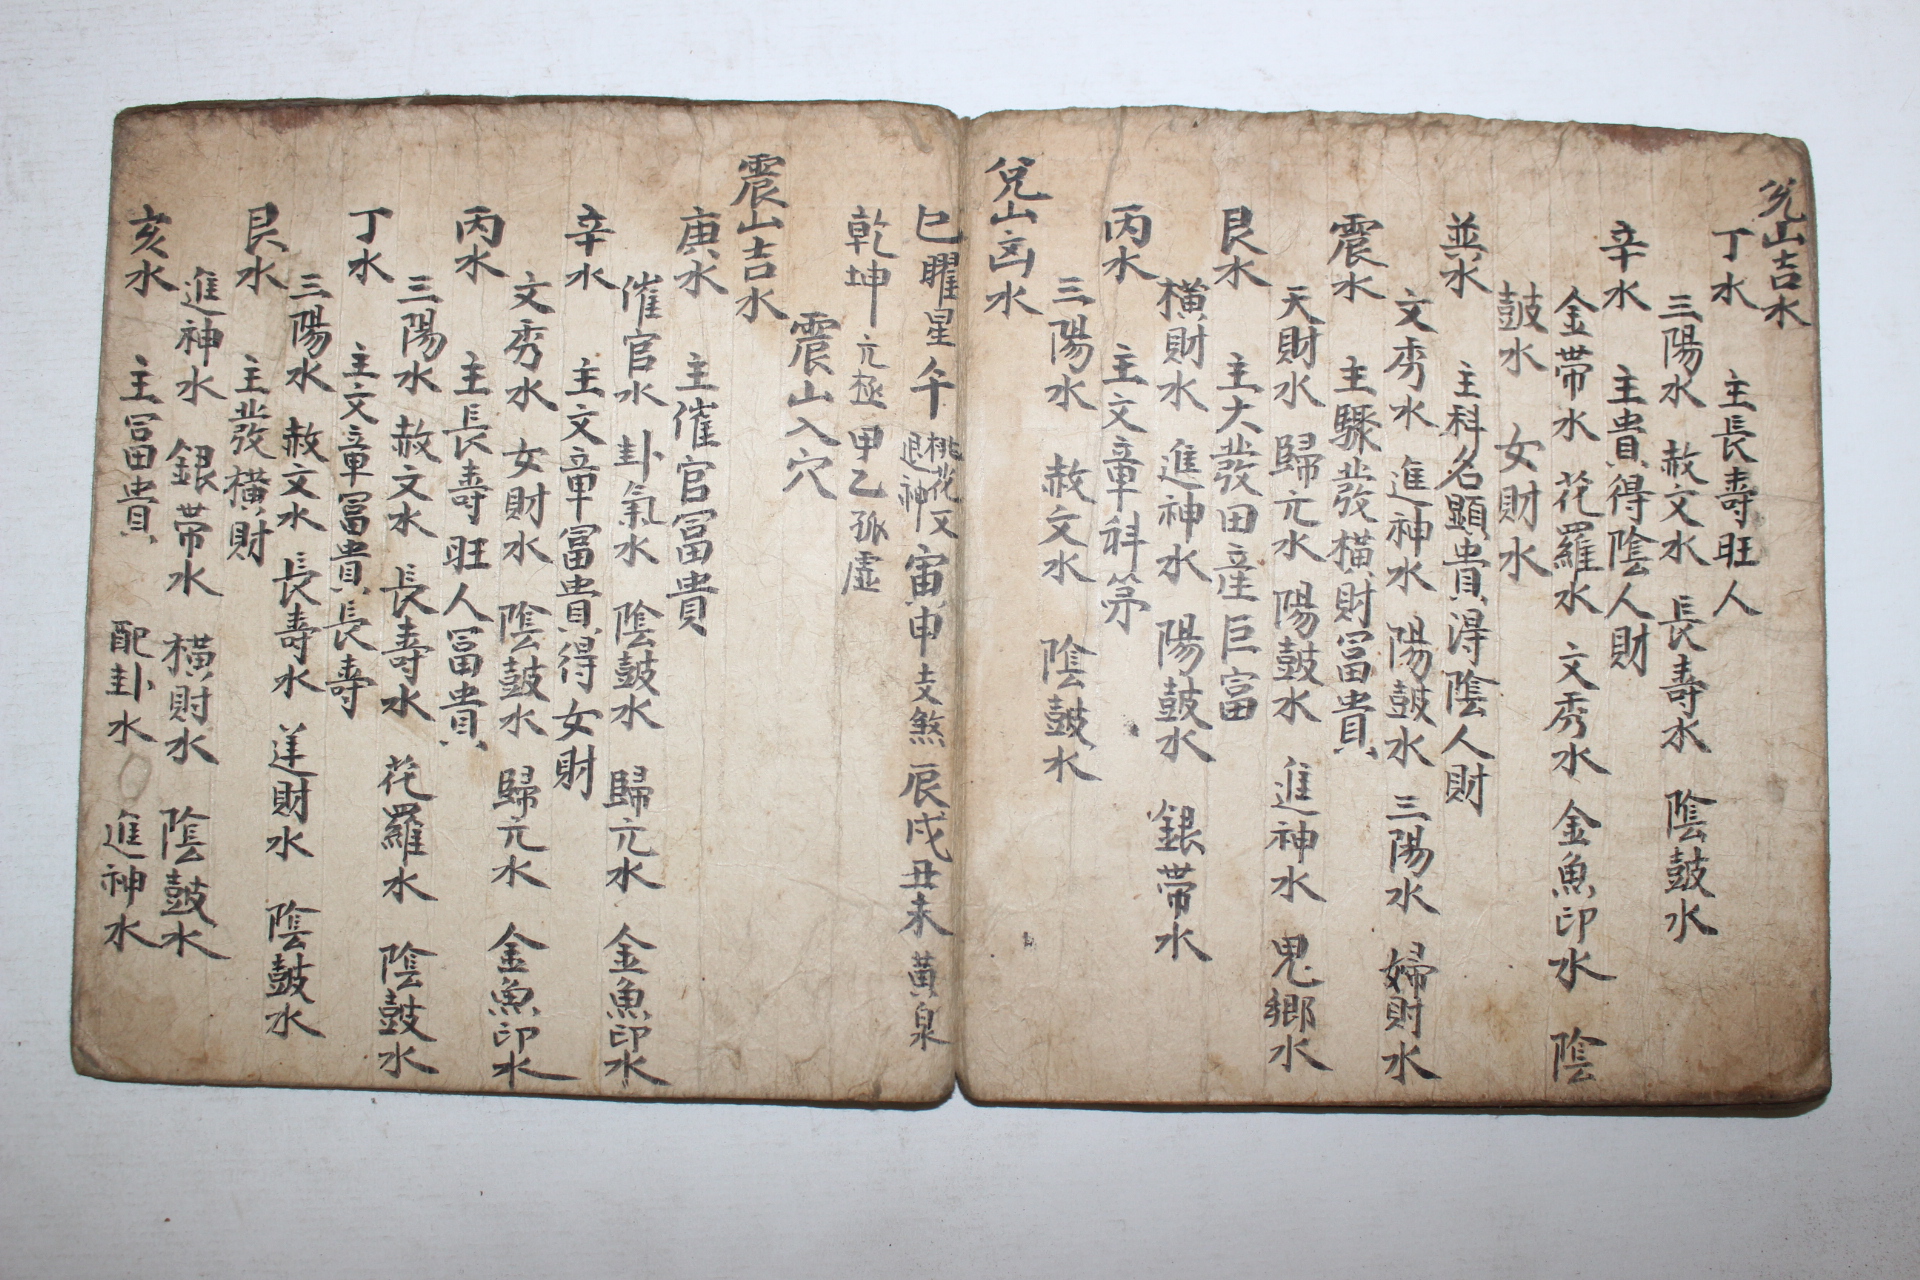 兊山吉水
丁水 主長壽旺人
三陽水 赦文水 長壽水 陰鼓水
辛水 主貴得陰人財
金帶水 花羅水 文秀水 金魚印水 陰
鼓水 女財水
並水 主科名顯貴得陰人財
文秀水 進神水 陽鼓水 三陽水 婦財水
震水 主驟發橫財冨貴
天財水 歸元水 陽鼓水 進神水 鬼鄉水
艮水 主大發田產巨富
橫財水 進神水 陽鼓水 銀帶水
丙水 主文章科第
三陽水 赦文水 陰鼓水
兊山凶水
巳曜星 午 桃花 退神 又寅申支煞 辰戌丑未 黃泉
乾坤 亢極 甲乙孤虛
震山入穴
震山吉水
庚水 主催官冨貴
催官水 卦氣水 陰鼓水 歸亢水 金魚印水
辛水 主文章冨貴得女財
文秀水 女財水 陰鼓水 歸亢水 金魚印水
丙水 主長壽旺人冨貴
三陽水 赦文水 長壽水 花羅水 陰鼓水
丁水 主文章冨貴長壽
三陽水 赦文水 長壽水 財水 陰鼓水
艮水 主發橫財
進神水 銀帶水 橫財水 陰鼓水
亥水 主冨貴 配卦水 進神水